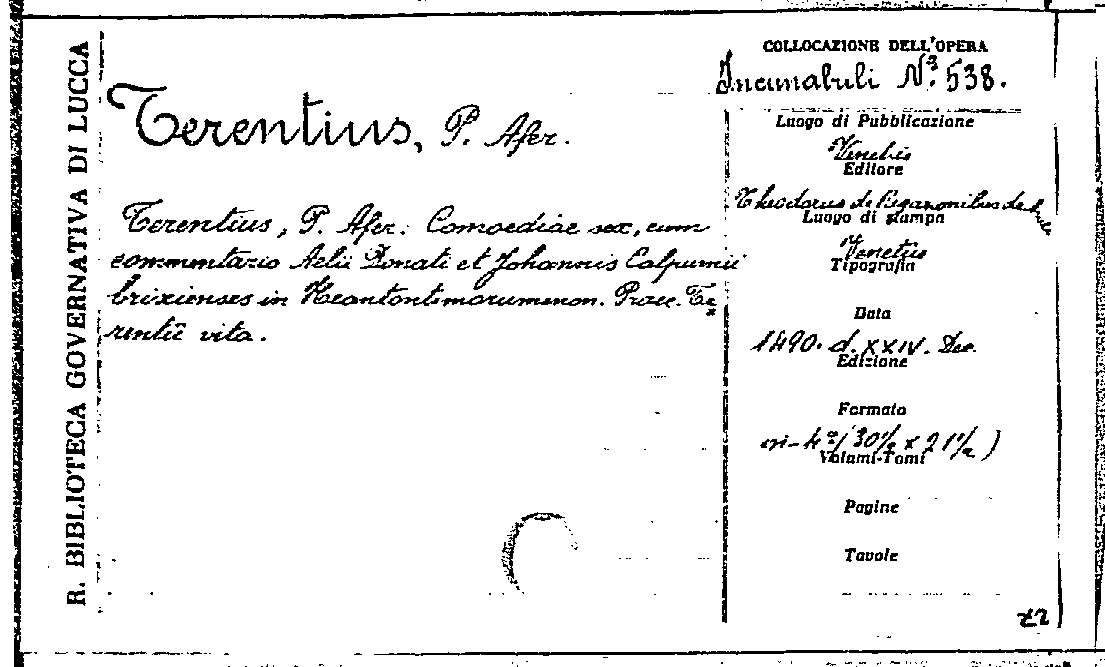 R. BIBLIOTECA GOVERNATIVA DI LUCCA
Terentius, P. Afer.
Terentius, P. Afer. Comoediae sex, cum
commentario Aelii Donati et Johannis Calpurnii
brixienses in Heantontimorumenon. Praec. Te
rentii vita.
COLLOCAZIONE DELL'OPERA
Incunabuli N.º 538.
Luogo di Pubblicazione
Venetiis
Editore
Theodorus de Ragazonibus de
Luogo di stampa
Venetiis
Tipografia
Data
1490. d. XXIV. Dec.
Edizione
Formato
in-4º (30½ x 21½)
Volumi-Tomi
Pagine
Tavole